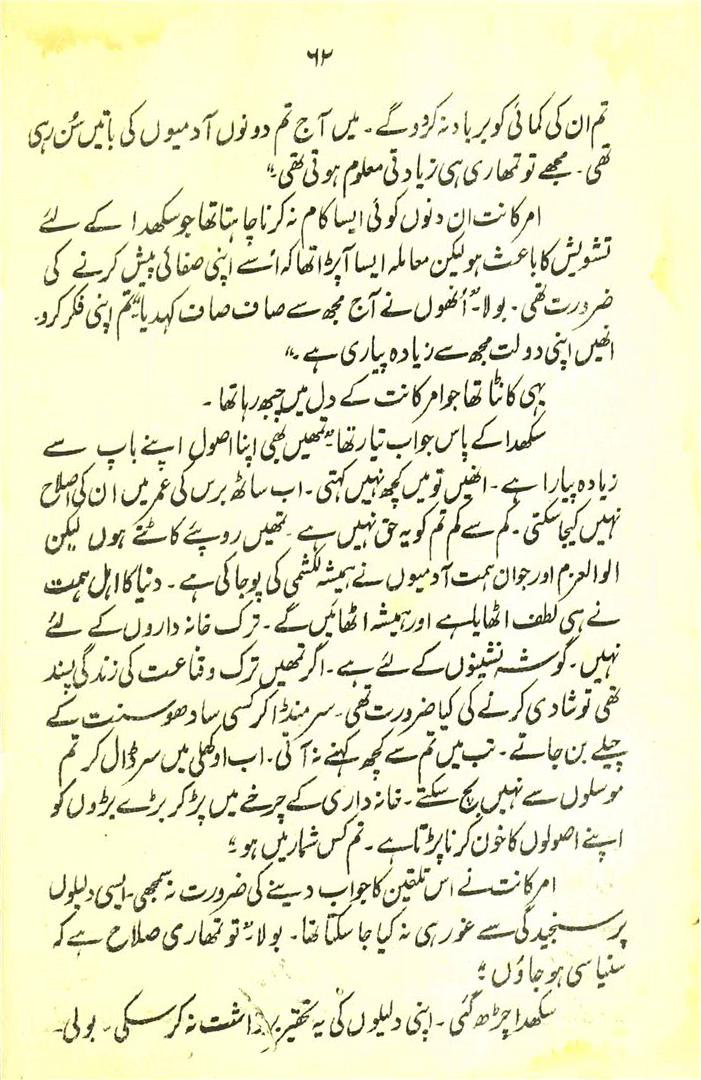 ۶۲
تم ان کی کمائی کو برباد نہ کرو گے۔ میں آج تم دونوں آدمیوں کی باتیں سُن رہی
تھی۔ مجھے تو تمھاری ہی زیادتی معلوم ہوتی تھی۔"
امرکانت ان دنوں کوئی ایسا کام نہ کرنا چاہتا تھا جو سکھدا کے لئے
تشویش کا باعث ہو لیکن معاملہ ایسا آپڑا تھا کہ اُسے اپنی صفائی پیش کرنے کی
ضرورت تھی۔ بولا۔ "اُنھوں نے آج مجھ سے صاف صاف کہدیا "تم اپنی فکر کرو۔
انھیں اپنی دولت مجھ سے زیادہ پیاری ہے۔"
یہی کانٹا تھا جو امرکانت کے دل میں چبھ رہا تھا۔
سکھدا کے پاس جواب تیار تھا "تمھیں بھی اپنا اصول اپنے باپ سے
زیادہ پیارا ہے۔ انھیں تو میں کچھ نہیں کہتی۔ اب ساٹھ برس کی عمر میں ان کی اصلاح
نہیں کیجا سکتی۔ کم سے کم تم کو یہ حق نہیں ہے۔ تمھیں روپئے کاٹتے ہوں لیکن
الوالعزم اور جوان ہمت آدمیوں نے ہمیشہ لکشمی کی پوجا کی ہے۔ دنیا کا اہل ہمت
نے ہی لطف اٹھایا ہے اور ہمیشہ اٹھائیں گے۔ ترک خانہ داروں کے لئے
نہیں۔ گوشہ نشینوں کے لئے ہے۔ اگر تمھیں ترک و قناعت کی زندگی پسند
تھی تو شادی کرنے کی کیا ضرورت تھی۔ سر منڈا کر کسی سادھو سنت کے
چیلے بن جاتے۔ تب میں تم سے کچھ کہنے نہ آتی۔ اب اوکھلی میں سر ڈال کر تم
موسلوں سے نہیں بچ سکتے۔ خانہ داری کے چرخے میں پڑ کر بڑے بڑوں کو
اپنے اصولوں کا خون کرنا پڑتا ہے۔ تم کس شمار میں ہو؟
امرکانت نے اس تلقین کا جواب دینے کی ضرورت نہ سمجھی۔ ایسی دلیلوں
پر سنجیدگی سے غور ہی نہ کیا جا سکتا تھا۔ بولا۔ "تو تمھاری صلاح ہے کہ
سنیاسی ہو جاؤں؟
سکھدا چڑھ گئی۔ اپنی دلیلوں کی یہ تحقیر برداشت نہ کر سکی۔ بولی۔